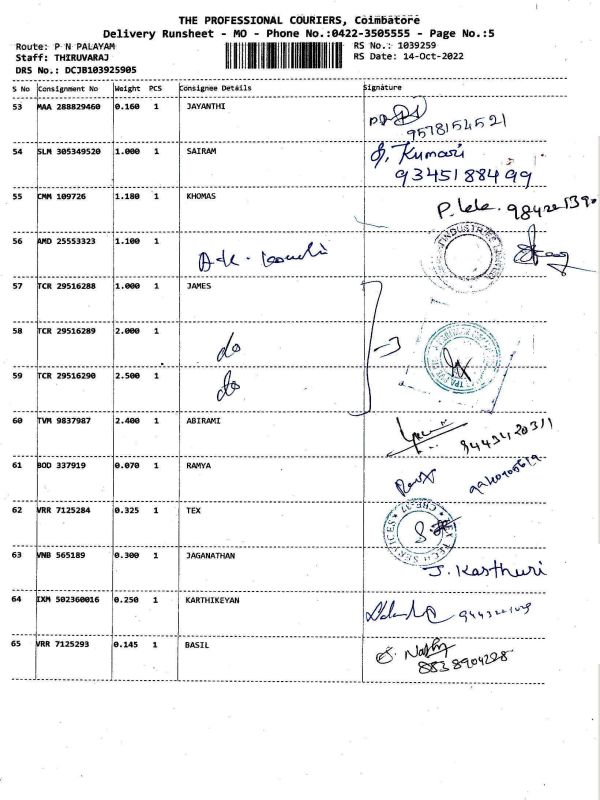 THE PROFESSIONAL COURIERS, Coimbatore
Delivery Runsheet - MO - Phone No.:0422-3505555 - Page No.:5
Route: P N PALAYAM RS No.: 1039259
Staff: THIRUVARAJ RS Date: 14-Oct-2022
DRS No.: DCJB103925905
S No Consignment No Weight PCS Consignee Details Signature
53 MAA 288829460 0.160 1 JAYANTHI
9578154521
54 SLM 305349520 1.000 1 SAIRAM Kumari
9345188499
55 CMM 109726 1.180 1 KHOMAS
56 AMD 25553323 1.100 1
INDUSTRIES
57 TCR 29516288 1.000 1 JAMES
58 TCR 29516289 2.000 1 do
59 TCR 29516290 2.500 1 do
60 TVM 9837987 2.400 1 ABIRAMI
61 BOD 337919 0.070 1 RAMYA
62 VRR 7125284 0.325 1 TEX
TECH SERVICES
63 VNB 565189 0.300 1 JAGANATHAN J. Kasthuri
64 IXM 502360016 0.250 1 KARTHIKEYAN
65 VRR 7125293 0.145 1 BASIL
8838904228